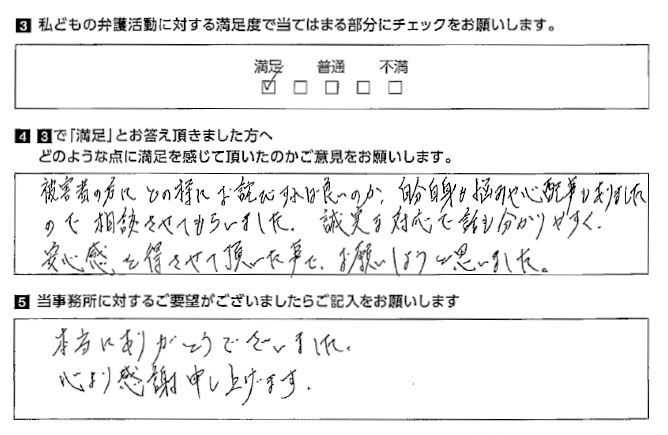 3 私どもの弁護活動に対する満足度で当てはまる部分にチェックをお願いします。
満足 普通 不満
4 3で「満足」とお答え頂きました方へ
どのような点に満足を感じて頂いたのかご意見をお願いします。
被害者の方にどの様にお詫びすれば良いのか、自分自身も悩みや心配事もありました
ので相談させてもらいました。誠実な対応で話も分かりやすく、
安心感を得させて頂いた事で、お願いしようと思いました。
5 当事務所に対するご要望がございましたらご記入をお願いします
本当にありがとうございました。
心より感謝申し上げます。